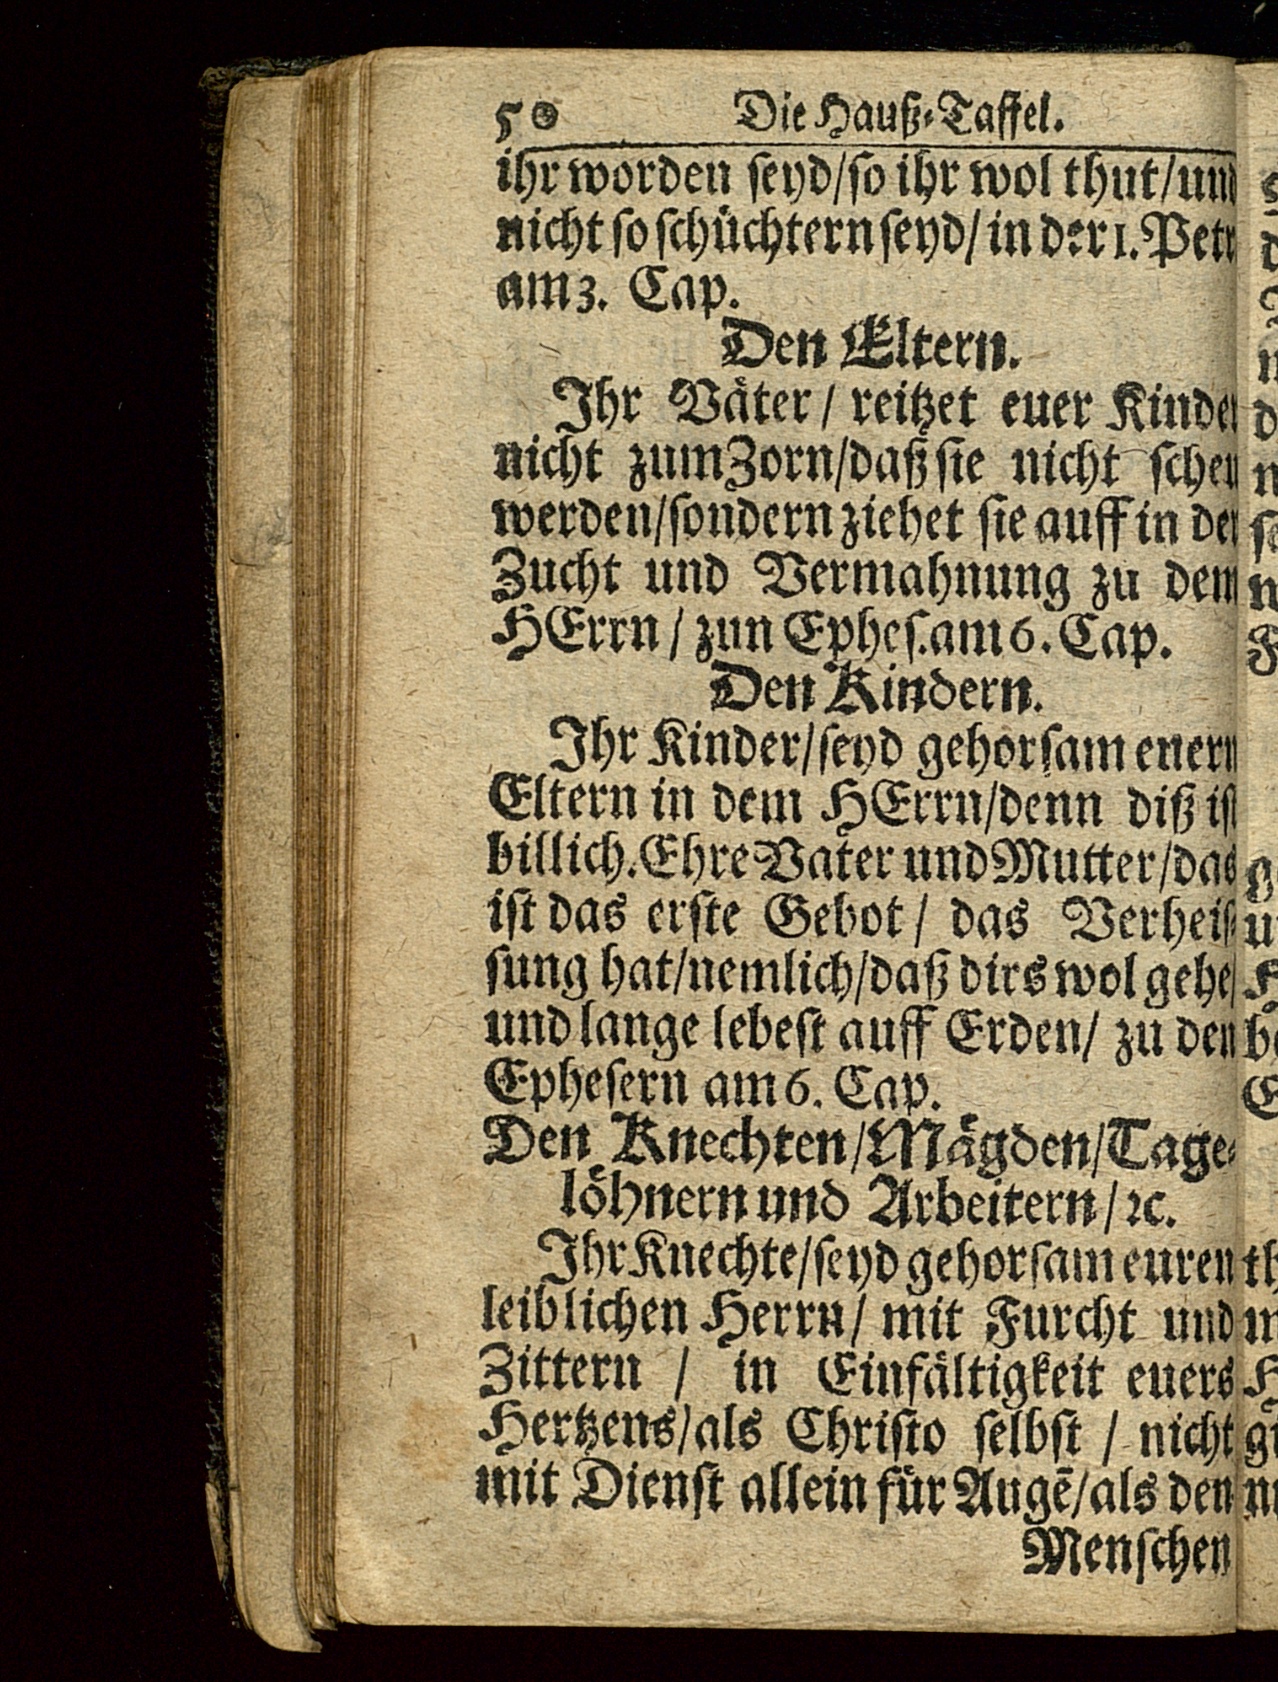 50 Die Hauß-Taffel.
ihr worden seyd/so ihr wol thut/und
nicht so schüchtern seyd/ in der 1. Petr
am 3. Cap.
Den Eltern.
Ihr Väter / reitzet euer Kinder
nicht zum Zorn/daß sie nicht scheu
werden/sondern ziehet sie auff in der
Zucht und Vermahnung zu dem
HErrn / zun Ephes. am 6. Cap.
Den Kindern.
Ihr Kinder/seyd gehorsam enern
Eltern in dem HErrn/denn diß ist
billich. Ehre Vater und Mutter/das
ist das erste Gebot / das Verheis-
sung hat/nemlich/daß dirs wol gehe/
und lange lebest auff Erden/ zu den
Ephesern am 6. Cap.
Den Knechten/Mägden/Tage-
löhnern und Arbeitern/ ꝛc.
Ihr Knechte/seyd gehorsam euren
leiblichen Herrn/ mit Furcht und
Zittern / in Einfältigkeit euers
Hertzens/als Christo selbst / nicht
mit Dienst allein für Augē/als den
Menschen